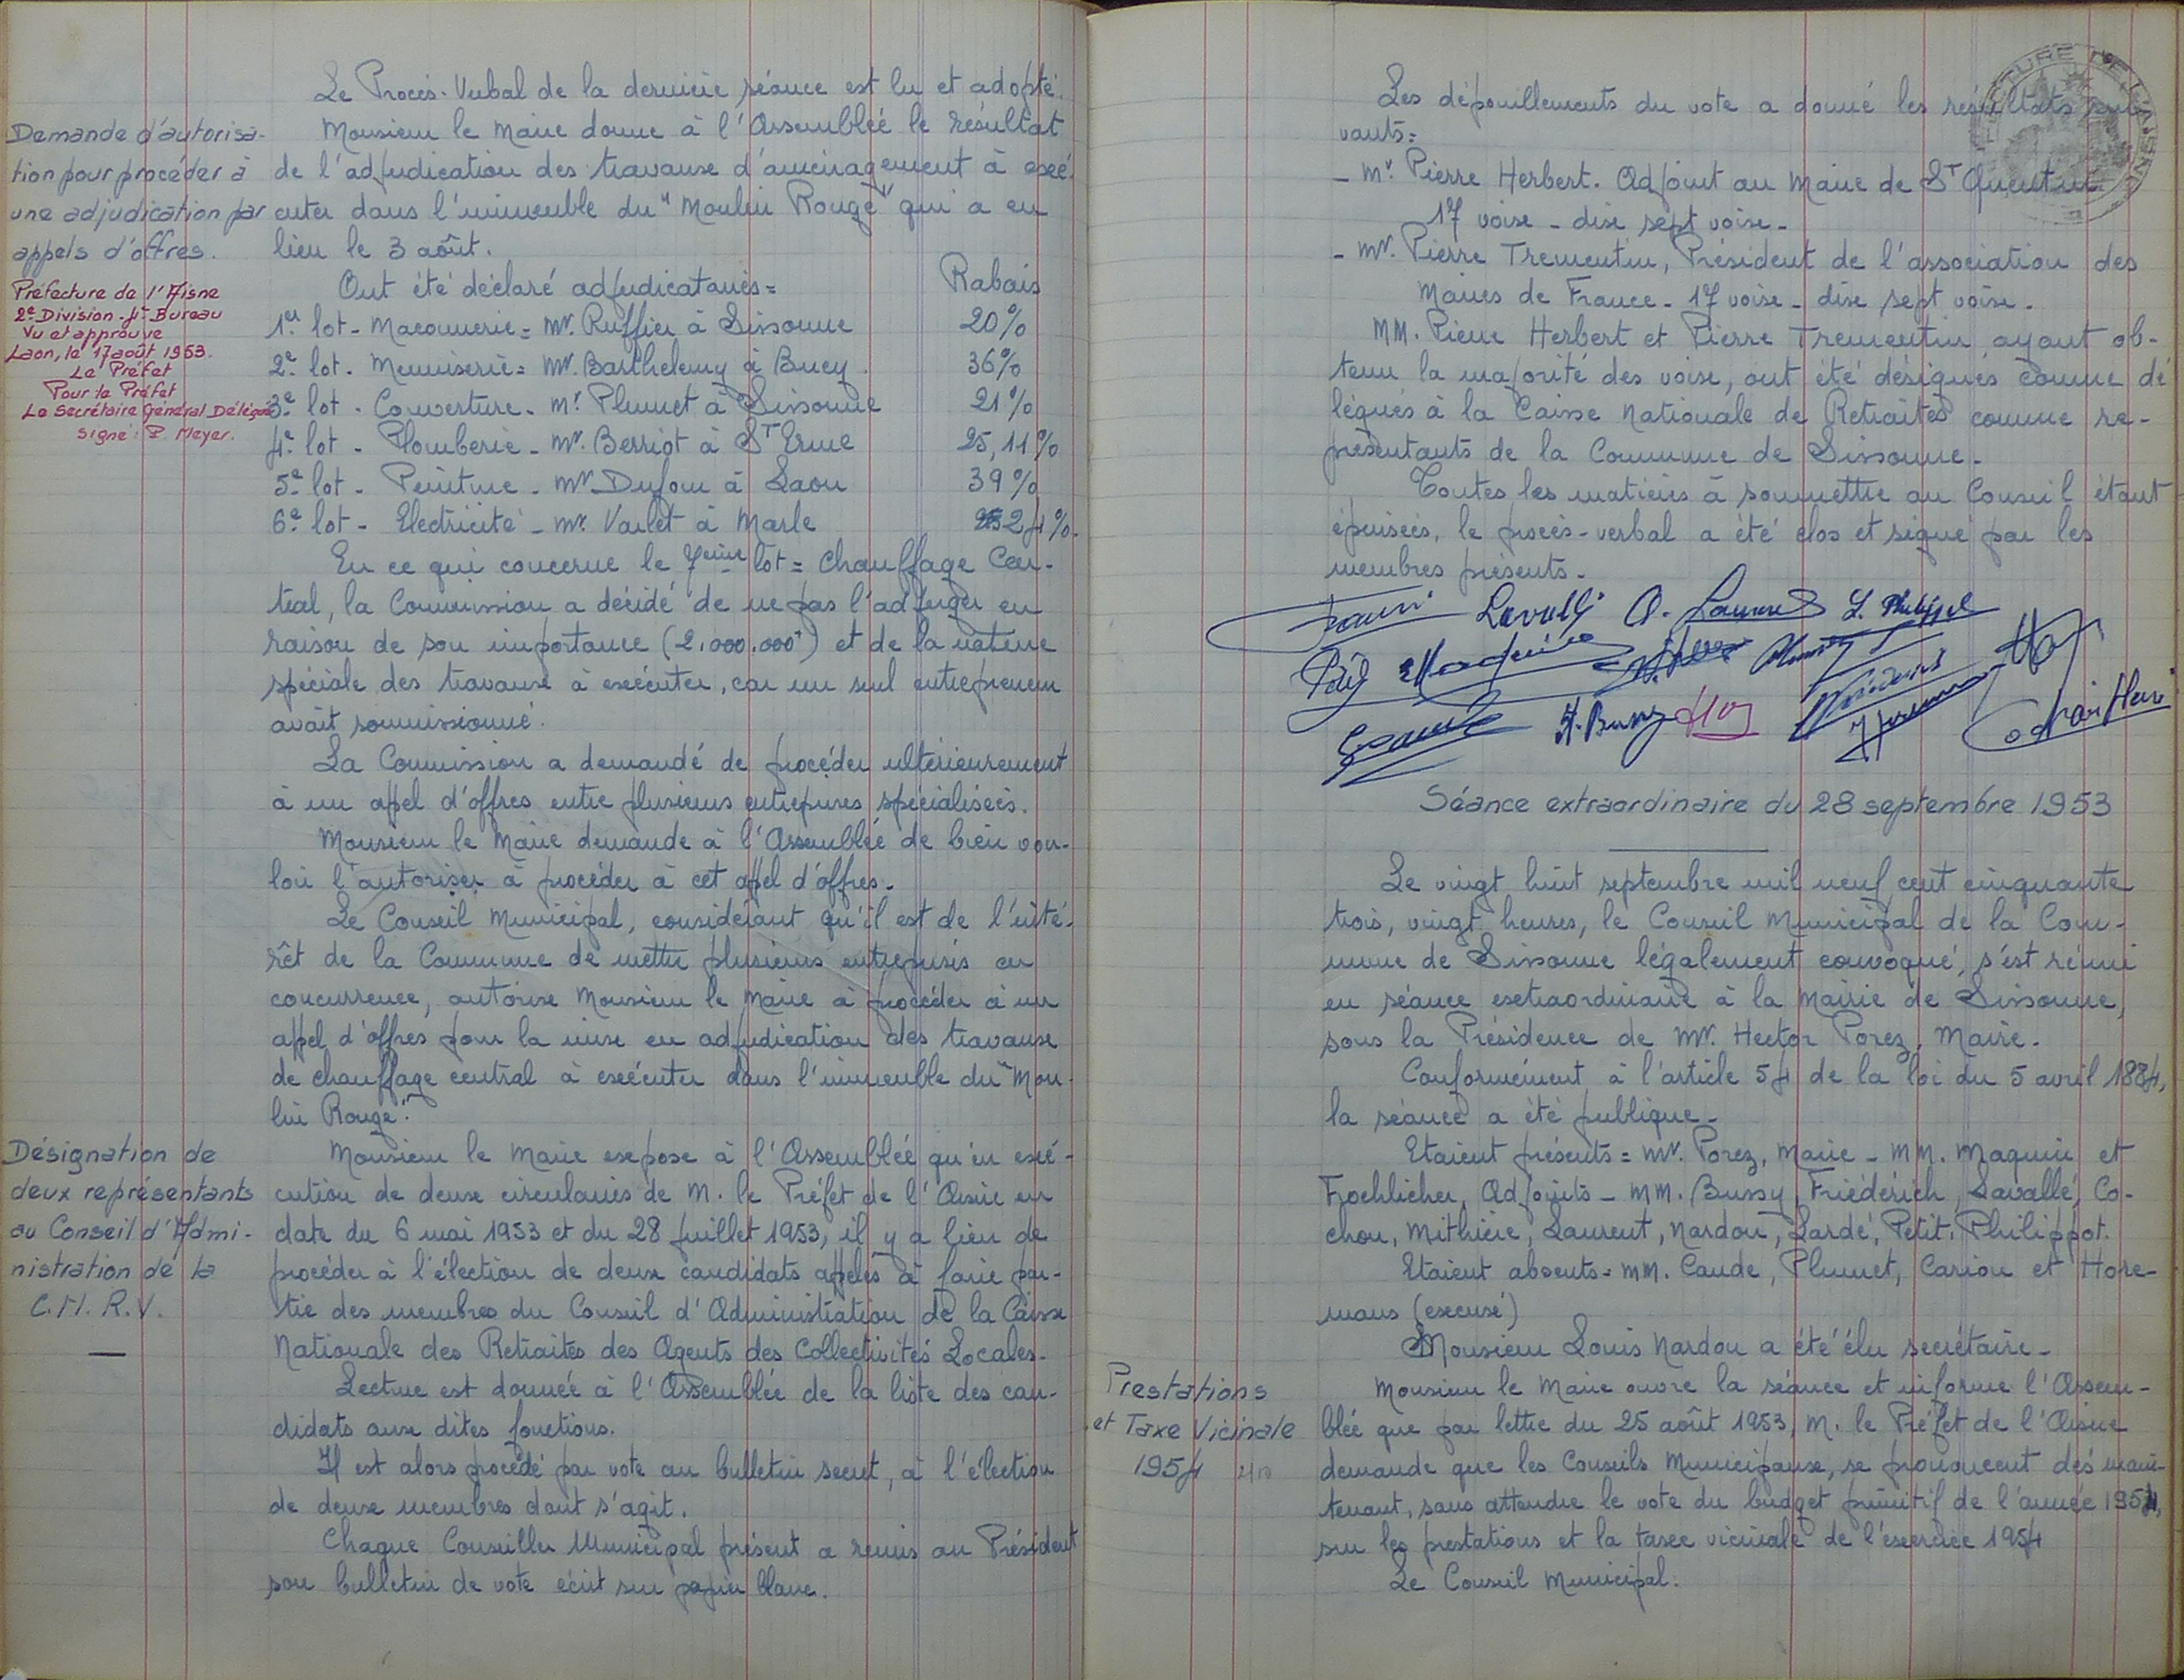 Le Procès-Verbal de la dernière séance est lu et adopté.
Demande d'autorisa-
tion pour procéder à
une adjudication par
appels d'offres.
Préfecture de l'Aisne
2e Division - 4e Bureau
Vu et approuvé
Laon, le 17 août 1953.
Le Préfet
Pour le Préfet
Le Secrétaire Général Délégué
signé : P. Meyer.
Monsieur le Maire donne à l'Assemblée le résultat
de l'adjudication des travaux d'aménagement à exé-
cuter dans l'immeuble du "Moulin Rouge" qui a eu
lieu le 3 août.
Ont été déclaré adjudicataires = Rabais
1er lot - Maçonnerie = Mr. Ruffier à Sissonne 20%
2e lot - Menuiserie = Mr. Barthelemy à Bucy. 36%
3e lot - Couverture - Mr. Plumet à Sissonne 21%
4e lot - Plomberie - Mr. Berriot à St Erme 25,11%
5e lot - Peinture - Mr. Dufour à Laon 39%
6e lot - Electricité - Mr. Varlet à Marle 24%.
En ce qui concerne le 7eme lot = Chauffage Cen-
tral, la Commission a décidé de ne pas l'adjuger en
raison de son importance (2.000.000f) et de la nature
spéciale des travaux à exécuter, car un seul entrepreneur
avait soumissionné.
La Commission a demandé de procéder ultérieurement
à un appel d'offres entre plusieurs entreprises spécialisées.
Monsieur le Maire demande à l'Assemblée de bien vou-
loir l'autoriser à procéder à cet appel d'offres.
Le Conseil Municipal, considérant qu'il est de l'inté-
rêt de la Commune de mettre plusieurs entreprises en
concurrence, autorise Monsieur le Maire à procéder à un
appel d'offres pour la mise en adjudication des travaux
de chauffage central à exécuter dans l'immeuble du "Mou-
lin Rouge".
Désignation de
deux représentants
au Conseil d'Admi-
nistration de la
C.N.R.V.
Monsieur le Maire expose à l'Assemblée qu'en exé-
cution de deux circulaires de M. le Préfet de l'Aisne en
date du 6 mai 1953 et du 28 juillet 1953, il y a lieu de
procéder à l'élection de deux candidats appelés à faire par-
tie des membres du Conseil d'Administration de la Caisse
Nationale des Retraites des Agents des Collectivités Locales.
Lecture est donnée à l'Assemblée de la liste des can-
didats aux dites fonctions.
Il est alors procédé par vote au bulletin secret, à l'élection
de deux membres dont s'agit.
Chaque Conseiller Municipal présent a remis au Président
son bulletin de vote écrit sur papier blanc.
Les dépouillements du vote a donné les résultats sui-
vants =
- Mr. Pierre Herbert. Adjoint au Maire de St Quentin
17 voix - dix sept voix -
- Mr. Pierre Trementin, Président de l'association des
Maires de France - 17 voix - dix sept voix -
MM. Pierre Herbert et Pierre Trementin ayant ob-
tenu la majorité des voix, ont été désignés comme dé
légués à la Caisse Nationale de Retraites comme re-
présentants de la Commune de Sissonne -
Toutes les matières à soumettre au Conseil étant
épuisées, le procès-verbal a été clos et signé par les
membres présents -
Séance extraordinaire du 28 septembre 1953
Le vingt huit septembre mil neuf cent cinquante
trois, vingt heures, le Conseil Municipal de la Com-
mune de Sissonne légalement convoqué, s'est réuni
en séance extraordinaire à la mairie de Sissonne,
sous la Présidence de Mr. Hector Porez, Maire.
Conformément à l'article 54 de la loi du 5 avril 1884,
la séance a été publique -
Etaient présents = Mr. Porez, Maire - MM. Maquin et
Froehlicher, Adjoints - MM. Bussy, Friédérich, Lavallé, Co-
chon, Mithière, Laurent, Nardou, Lardé, Petit, Philippot.
Etaient absents = MM. Caude, Plumet, Cariou et Hore-
mans (excusé)
Monsieur Louis Nardou a été élu secrétaire -
Prestations
et Taxe Vicinale
1954
Monsieur le Maire ouvre la séance et informe l'Assem-
blée que par lettre du 25 août 1953, M. le Préfet de l'Aisne
demande que les Conseils Municipaux, se prononcent dès main-
tenant, sans attendre le vote du budget primitif de l'année 1954,
sur les prestations et la taxe vicinale de l'exercice 1954
Le Conseil Municipal.